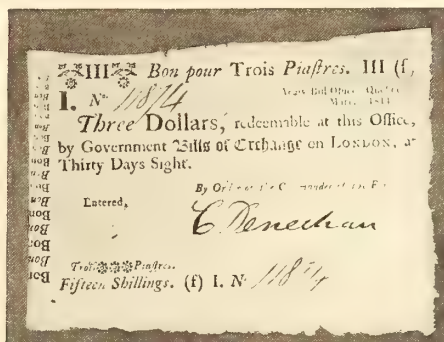 III Bon pour Trois Piastres. III (f,
I. No. 11874
Army Bill Office, Quebec
1814
Three Dollars, redeemable at this Office,
by Government Bills of Exchange on LONDON, at
Thirty Days Sight.
By Order of the Commander of the
Entered,
C. Denechau
Trois Piastres.
Fifteen Shillings. (f) I. No. 11874
Bon
Bon
Bon
Bon
Bon
Bon
Bon
Bon